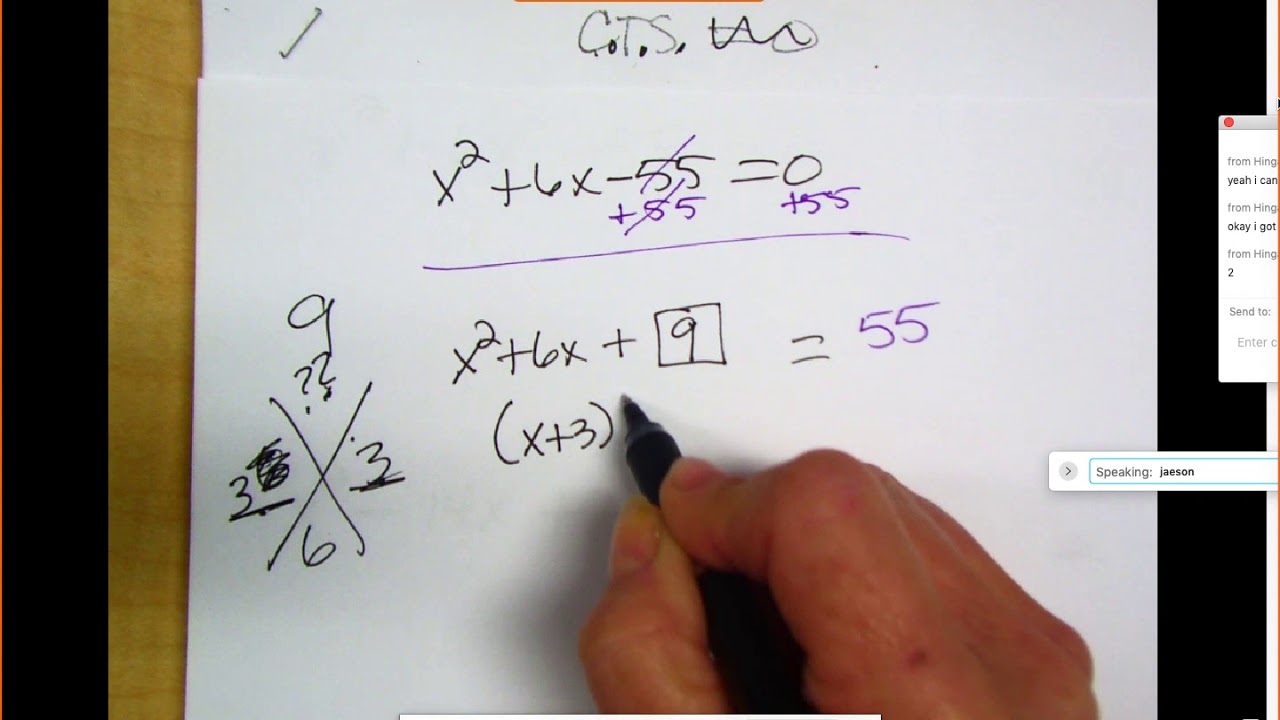 C.T.S.
x² + 6x - 55 = 0
+55 +55
x² + 6x + 9 = 55
(x+3)
9
??
3 3
6
from Hing
yeah i can
from Hing
okay i got
from Hing
2
Send to:
Enter c
Speaking: jaeson